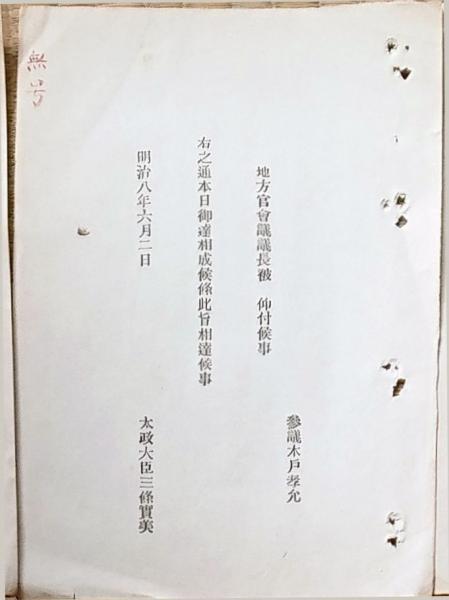 無号
參議木戶孝允
地方官會議議長被　仰付候事
右之通本日御達相成候條此旨相達候事
明治八年六月二日
太政大臣三條實美